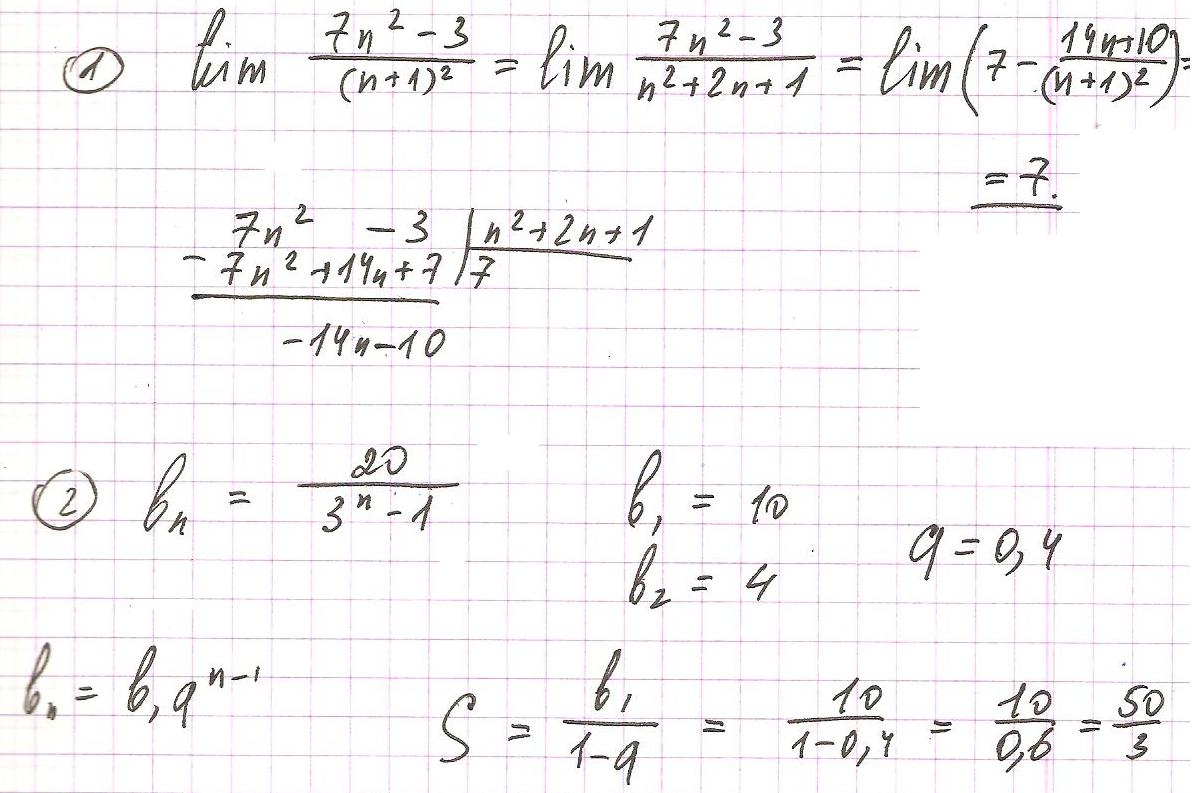 ① lim (7n² - 3)/((n+1)²) = lim (7n² - 3)/(n² + 2n + 1) = lim (7 - (14n+10)/((n+1)²)) =
= 7.
7n² - 3 | n² + 2n + 1
- 7n² + 14n + 7 | 7
-14n - 10
② bₙ = 20/(3ⁿ - 1) b₁ = 10 q = 0,4
b₂ = 4
bₙ = b₁qⁿ⁻¹ S = b₁/(1-q) = 10/(1-0,4) = 10/0,6 = 50/3